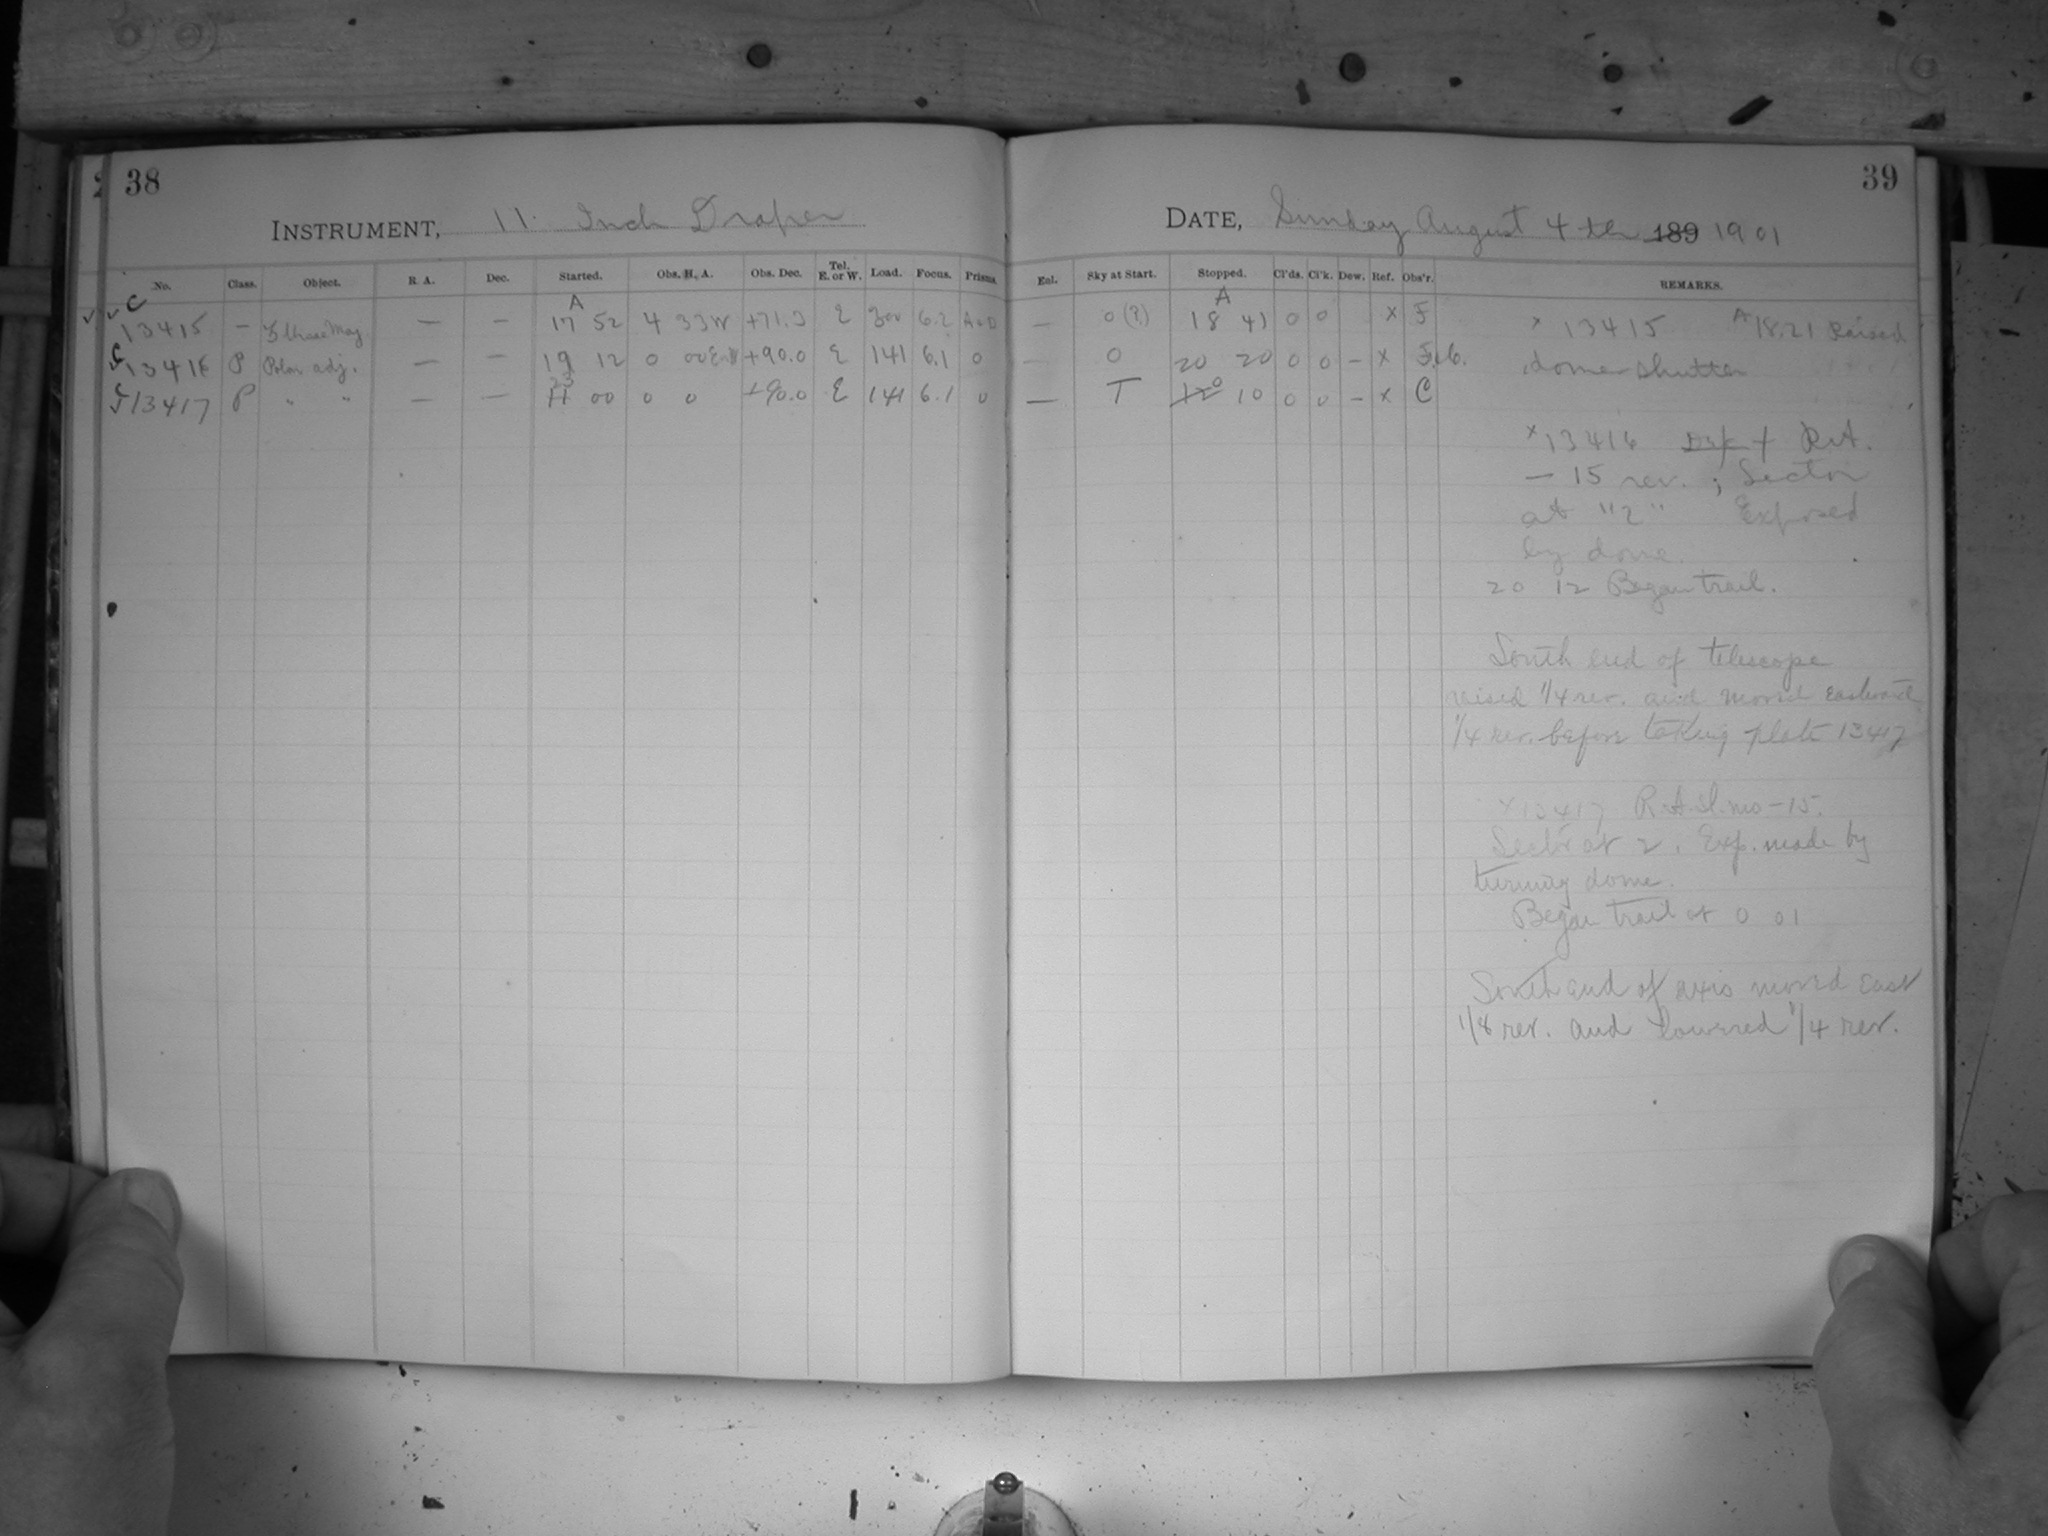 38
INSTRUMENT, 11. Inch Draper
No. Class. Object. R. A. Dec. Started. Obs. H. A. Obs. Dec. Tel. E. or W. Load. Focus. Prisms.
C
A
13415 – – – 17 52 4 33W E 6.2
C
13416 P Polar adj. – – 19 12 0 +90.0 E 141 6.1 0
C
23
13417 P " " – — 00 0 0 +90.0 E 141 6.1 0
39
DATE, Sunday August 4th 189 1901
Enl. Sky at Start. Stopped. Cl'ds. Cl'k. Dew. Ref. Obs'r. REMARKS.
A
– 0 (?) 18 41 0 0 x F
— 0 20 20 0 0 – x
— T 12 0 10 0 0 – x C
x 13415 A 18.21 Raised
dome shutter
x 13416 R.A.
— 15 rev. ; Sector
at "2" Exposed
by dome.
20 12 Began trail.
South end of telescope
raised 1/4 rev. and moved eastward
1/4 rev. before taking plate 13417
x 13417 R.A. sl. mo – 15.
Sector at 2. Exp. made by
turning dome.
Began trail at 0 01
South end of axis moved east
1/8 rev. and lowered 1/4 rev.